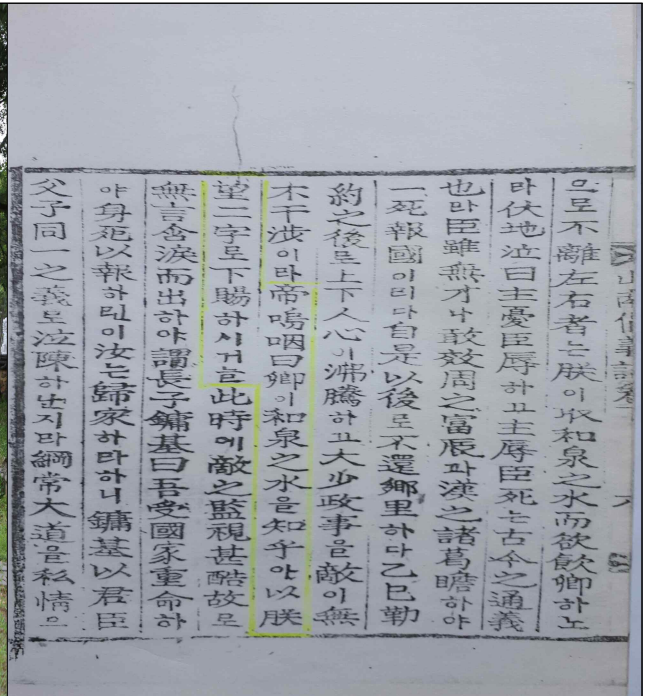 으로不離左右者는朕이取和泉之水而欲飮卿하노
라伏地泣曰主憂臣辱하고主辱臣死는古今之通義
也라臣雖無才나敢效周之富辰과漢之諸葛瞻하야
一死報國이리다自是以後로不還鄕里하다乙巳勒
約之後로上下人心이沸騰하고大少政事을敵이無
不干涉이라帝嗚咽曰卿이和泉之水을知乎아以朕
望二字로下賜하시거늘此時에敵之監視甚酷故로
無言含淚而出하야謂長子鏞基曰吾受國家重命하
야身死以報하린이汝는歸家하라하니鏞基以君臣
父子同一之義로泣陳하난지라綱常大道을私情으